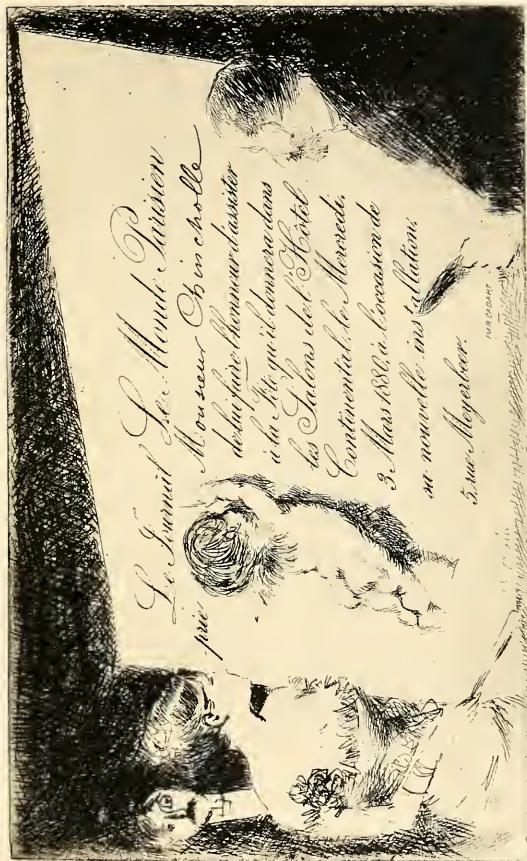 Le Journal Le Monde Parisien
prie Monsieur Chincholle
de lui faire l'honneur d'assister
à la Fête qu'il donnera dans
les Salons de l'Hôtel
Continental, le Mercredi,
3 Mars 1880, à l'occasion de
sa nouvelle installation.
5, rue Meyerbeer.
IMP. CADART